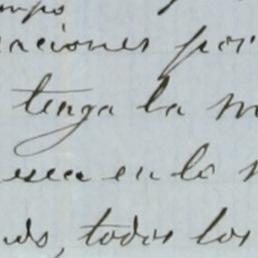 mpo
aciones por
tenga la m
esea en lo
us, todos los